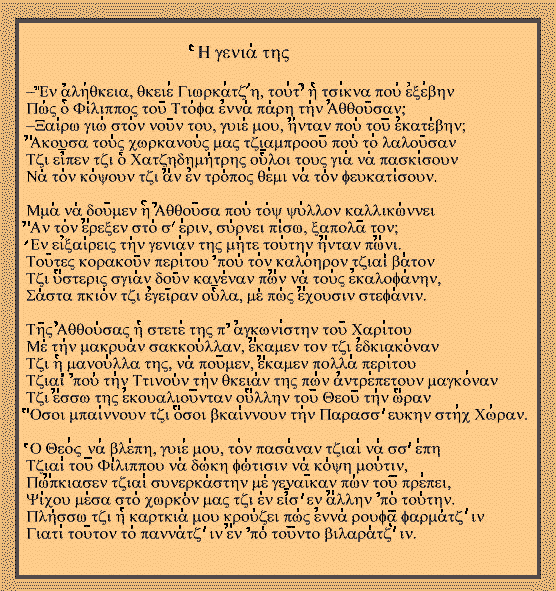 Ἡ γενιά της
–Ἔν ἀλήθκεια, θκειέ Γιωρκάτζ΄η, τούτ’ ἡ τσίκνα πού ἐξέβην
Πώς ὁ Φίλιππος τοῦ Ττόφα ἐννά πάρη τήν Ἀθθοῦσαν;
–Ξαίρω γιώ στόν νοῦν του, γυιέ μου, ἦνταν πού τοῦ ἐκατέβην;
Ἄκουσα τούς χωρκανούς μας τζιαμπροοῦ πού τό λαλοῦσαν
Τζι εἶπεν τζι ὁ Χατζηδημήτρης οὗλοι τους γιά νά πασκίσουν
Νά τόν κόψουν τζι ἄν ἐν τρόπος θέμι νά τόν φευκατίσουν.
Μμά νά δοῦμεν ἡ Ἀθθοῦσα πού τόψ ψύλλον καλλικώννει
Ἄν τόν ἔρεξεν στό σ΄έριν, σύρνει πίσω, ξαπολᾶ τον;
Ἐν εἰξαίρεις τήν γενιάν της μήτε τούτην ἦνταν πὤνι.
Τοῦτες κορακοῦν περίτου ’πού τόν καλόηρον τζιαί βάτον
Τζι ὕστερις σγιάν δοῦν κανέναν πὤν νά τούς ἐκαλοφάνην,
Σάστα πκιόν τζι ἐγεῖραν οὗλα, μέ πώς ἔχουσιν στεφάνιν.
Τῆς Ἀθθούσας ἡ στετέ της π’ ἀγκωνίστην τοῦ Χαρίτου
Μέ τήν μακρυάν σακκούλλαν, ἔκαμεν τον τζι ἐδκιακόναν
Τζι ἡ μανούλλα της, νά ποῦμεν, ἔκαμεν πολλά περίτου
Τζιαί ’πού τήν Ττινούν τήν θκειάν της πὤν ἀντρέπετουν μαγκόναν
Τζι ἔσσω της εκουαλιούνταν οὕλλην τοῦ Θεοῦ τήν ὥραν
Ὅσοι μπαίννουν τζι ὅσοι βκαίννουν τήν Παρασσ΄ευκην στήχ Χώραν.
Ὁ Θεός νά βλέπη, γυιέ μου, τόν πασάναν τζιαί νά σσ΄έπη
Τζιαί τοῦ Φίλιππου νά δώκη φώτισιν νά κόψη μούτιν,
Πὤπκιασεν τζιαί συνερκάστην μέ γεναίκαν πὤν τοῦ πρέπει,
Ψίχου μέσα στό χωρκόν μας τζι ἐν εἶσ΄εν ἄλλην ’πό τούτην.
Πλήσσω τζι ἡ καρτκιά μου κρούζει πώς ἐννά ρουφᾶ φαρμάτζ΄ιν
Γιατί τοῦτον τό παννάτζ΄ιν ἔν ’πό τοῦντο βιλαράτζ΄ιν.